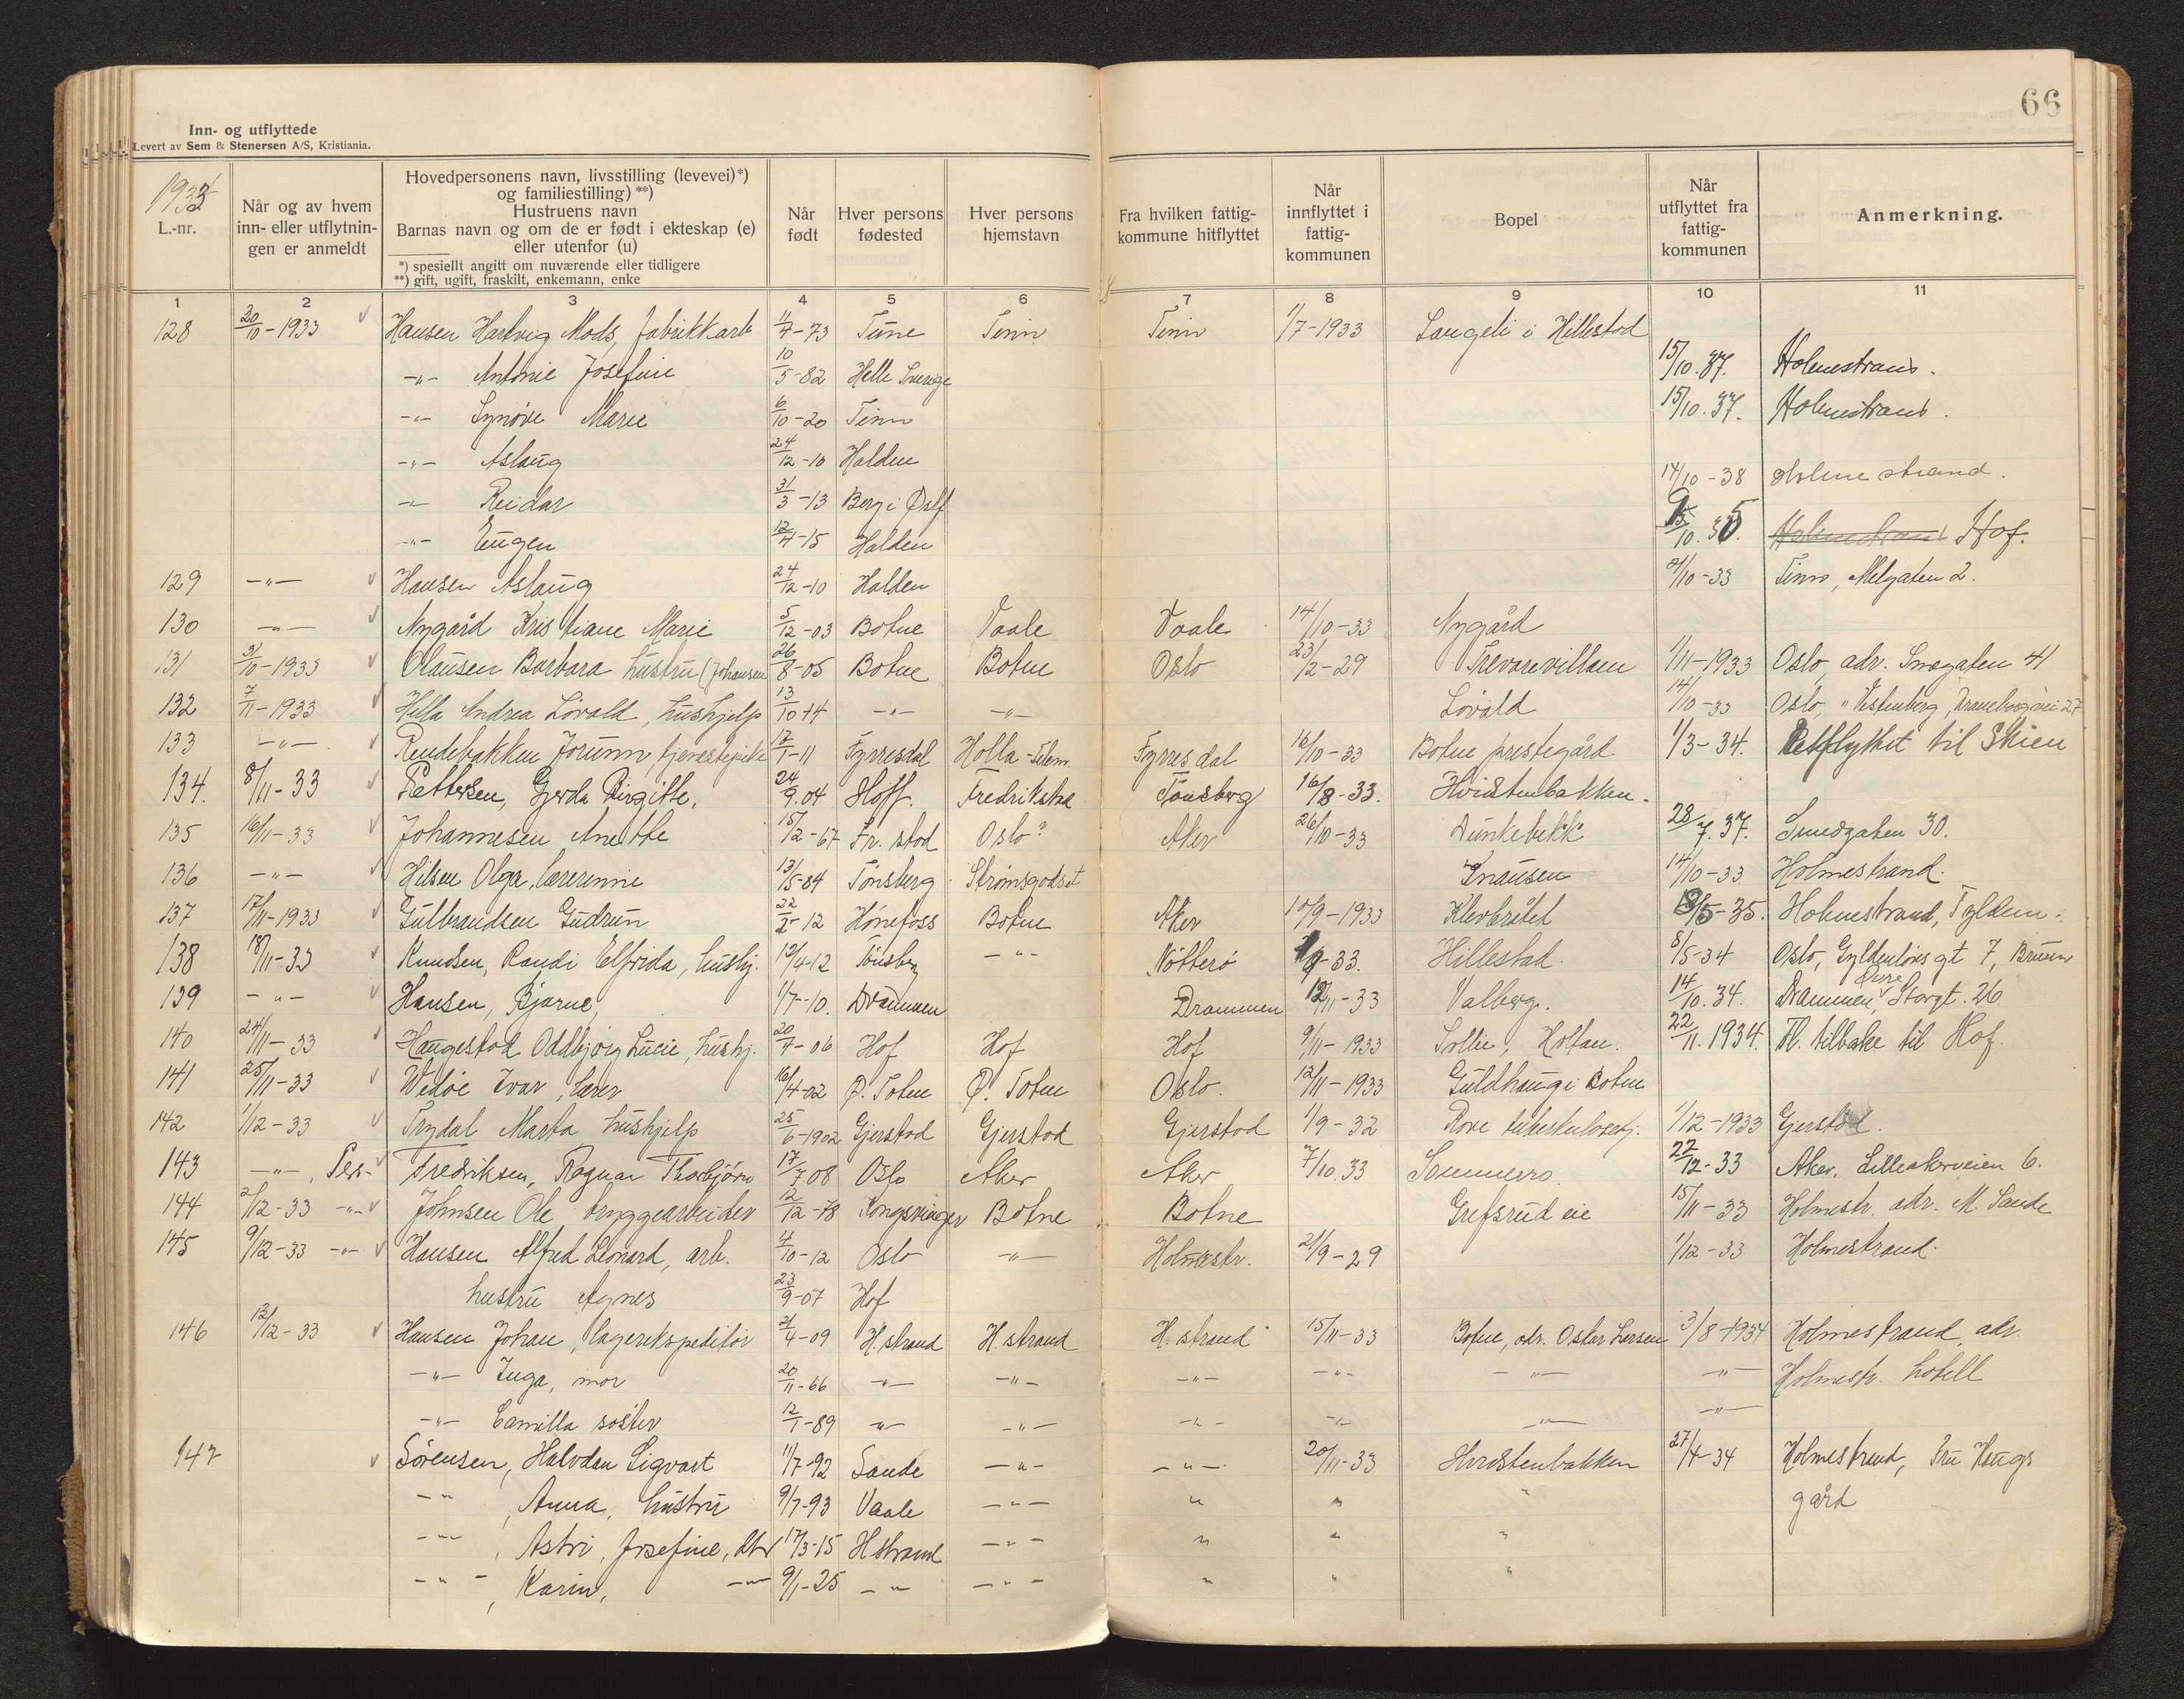 66
Inn- og utflyttede
Levert av Sem & Stenersen A/S, Kristiania.
1933
L.-nr.
Når og av hvem inn- eller utflytningen er anmeldt
Hovedpersonens navn, livsstilling (levevei)*)
og familiestilling)**)
Hustruens navn
Barnas navn og om de er født i ekteskap (e)
eller utenfor (u)
*) spesiellt angitt om nuværende eller tidligere
**) gift, ugift, fraskilt, enkemann, enke
Når født
Hver persons fødested
Hver persons hjemstavn
Fra hvilken fattig-kommune hitflyttet
Når innflyttet i fattig-kommunen
Bopel
Når utflyttet fra fattig-kommunen
Anmerkning.
1 2 3 4 5 6 7 8 9 10 11
128 20/10-1933 Hansen Hartvig Mads, fabrikkarb 11/4-73 Tune Tinn Tinn 1/7-1933 Langeli i Hillestad
-"- Antonie Josefine 10/5-82 Helle Sverige 15/10.37. Holmestrand.
-"- Synøve Marie 6/10-20 Tinn 15/10.37. Holmestrand.
-"- Aslaug 24/12-10 Halden
-"- Reidar 31/3-13 Berg i Østf 14/10-38 Holmestrand.
-"- Eugen 12/4-15 Halden /10.35. Holmestrand Hof.
129 -"- Hansen Aslaug 24/12-10 Halden /10-33 Tinn, Melgaten 2.
130 -"- Nygård Kristiane Marie 5/12-03 Botne Vaale Vaale 14/10-33 Nygård
131 31/10-1933 Olausen Barbara hustru (Johansen 26/8-05 Botne Botne Oslo 23/2-29 Trevarevillaen 1/11-1933 Oslo, adr. 41
132 7/11-1933 Hella Andrea Løvald, hushjelp 13/10-14 -"- -"- Løvald 14/10-33 Oslo, " Vestenberg, 27
133 -"- Rendebakken Jorunn tjenestepike 17/1-11 Fyrresdal Holla-Telem. Fyrresdal 16/10-33 Botne prestegård 1/3-34. Utflyttet til Skien
134. 8/11-33 Pettersen, Gjerda Birgitte, 24/9.04 Hoff. Fredrikstad Tønsberg 16/8-33. Hvidstenbakken.
135 16/11-33 Johannesen Anette 15/2-67 Fr. stad Oslo? Aker 26/10-33 Dunkebekk 28/7.37. Smedgaten 30.
136 -"- Hilsen Olga, lærerinne 13/5-84 Tønsberg Strømsgodset Snausen 14/10-33 Holmestrand.
137 17/11-1933 Gulbrandsen Gudrun 22/2-12 Hønefoss Botne Aker 10/9-1933 Klevbråtet /5-35. Holmestrand,
138 18/11-33 Knudsen, Randi Elfrida, hushj. 12/4-12 Tønsberg -"- Nøtterø /9-33. Hillestad. 8/5-34 Oslo, Gyldenløves gt 7, Bruun
139 -"- Hansen, Bjarne, 1/7-10. Drammen Drammen 12/11-33 Valberg. 14/10.34. Drammen, Øvre Storgt. 26
140 24/11-33 Haugestad Oddbjørg Lucie, hushj. 20/4-06 Hof Hof Hof 9/11-1933 Sollie, Holtan. 22/11.1934. Fl. tilbake til Hof.
141 25/11-33 Wedøe Ivar, lærer 16/4-02 Ø. Toten Ø. Toten Oslo. 12/11-1933 Guldhaug i Botne
142 1/12-33 Trydal Marta, hushjelp 25/6-1902 Gjerstad Gjerstad Gjerstad 1/9-32 Rove tuberkulosehj. 1/12-1933 Gjerstad.
143 -"-, Fredriksen, Ragnar Thorbjørn 17/7.08 Oslo Aker Aker 7/10.33 Sommerro. 22/12-33 Aker, Lilleakerveien 6.
144 2/12-33 -"- Johnsen Ole bryggearbeider 12/12-78 Kongsvinger Botne Botne Grefsrud eie 15/11-33 Holmestr. adr. M. Sande
145 9/12-33 -"- Hansen Alfred Leonard, arb. 4/10-12 Oslo -"- Holmestr. 21/9-29 1/12-33 Holmestrand.
hustru Agnes 23/9-07 Hof
146 12/12-33 Hansen Johan, lagerekspeditør 21/4-09 H.strand H.strand H.strand 15/11-33 Botne, adr. Oskar Larsen 3/8-1934 Holmestrand, adr.
-"- Inga, mor 20/11-66 -"- -"- -"- -"- -"- -"- Holmestr. hotell
-"- Camilla søster 12/1-89 -"- -"- -"- -"- -"- -"-
147 Sørensen, Halvdan Sigvart 11/7-92 Sande -"- -"- 20/11-33 Hvidstenbakken 27/4-34 Holmestrand, Fru Haugs
-"-, Anna, hustru 9/7-93 Vaale -"- " " " gård
-"-, Astri, Josefine, dtr 17/3-15 H.strand -"- " " "
-"-, Karin, -"- 9/1-25 -"- -"- " " "